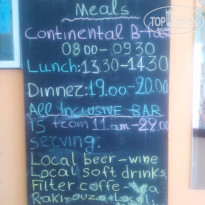 Meals
Continental B-fast
08.00-0930
Lunch: 13.30-14.30
Dinner: 19.00-20.00
All Inclusive BAR
IS from 11.am-
serving:
Local beer-wine
Local soft drinks
Filter coffe - tea
Raki-ouzo+Local